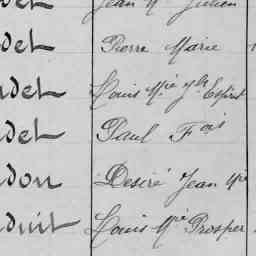 det Jean Mie Julien
det Pierre Marie
det Louis Mie Jh Esprit
det Paul Fois
don Desiré Jean Mie
duit Louis Mie Prosper